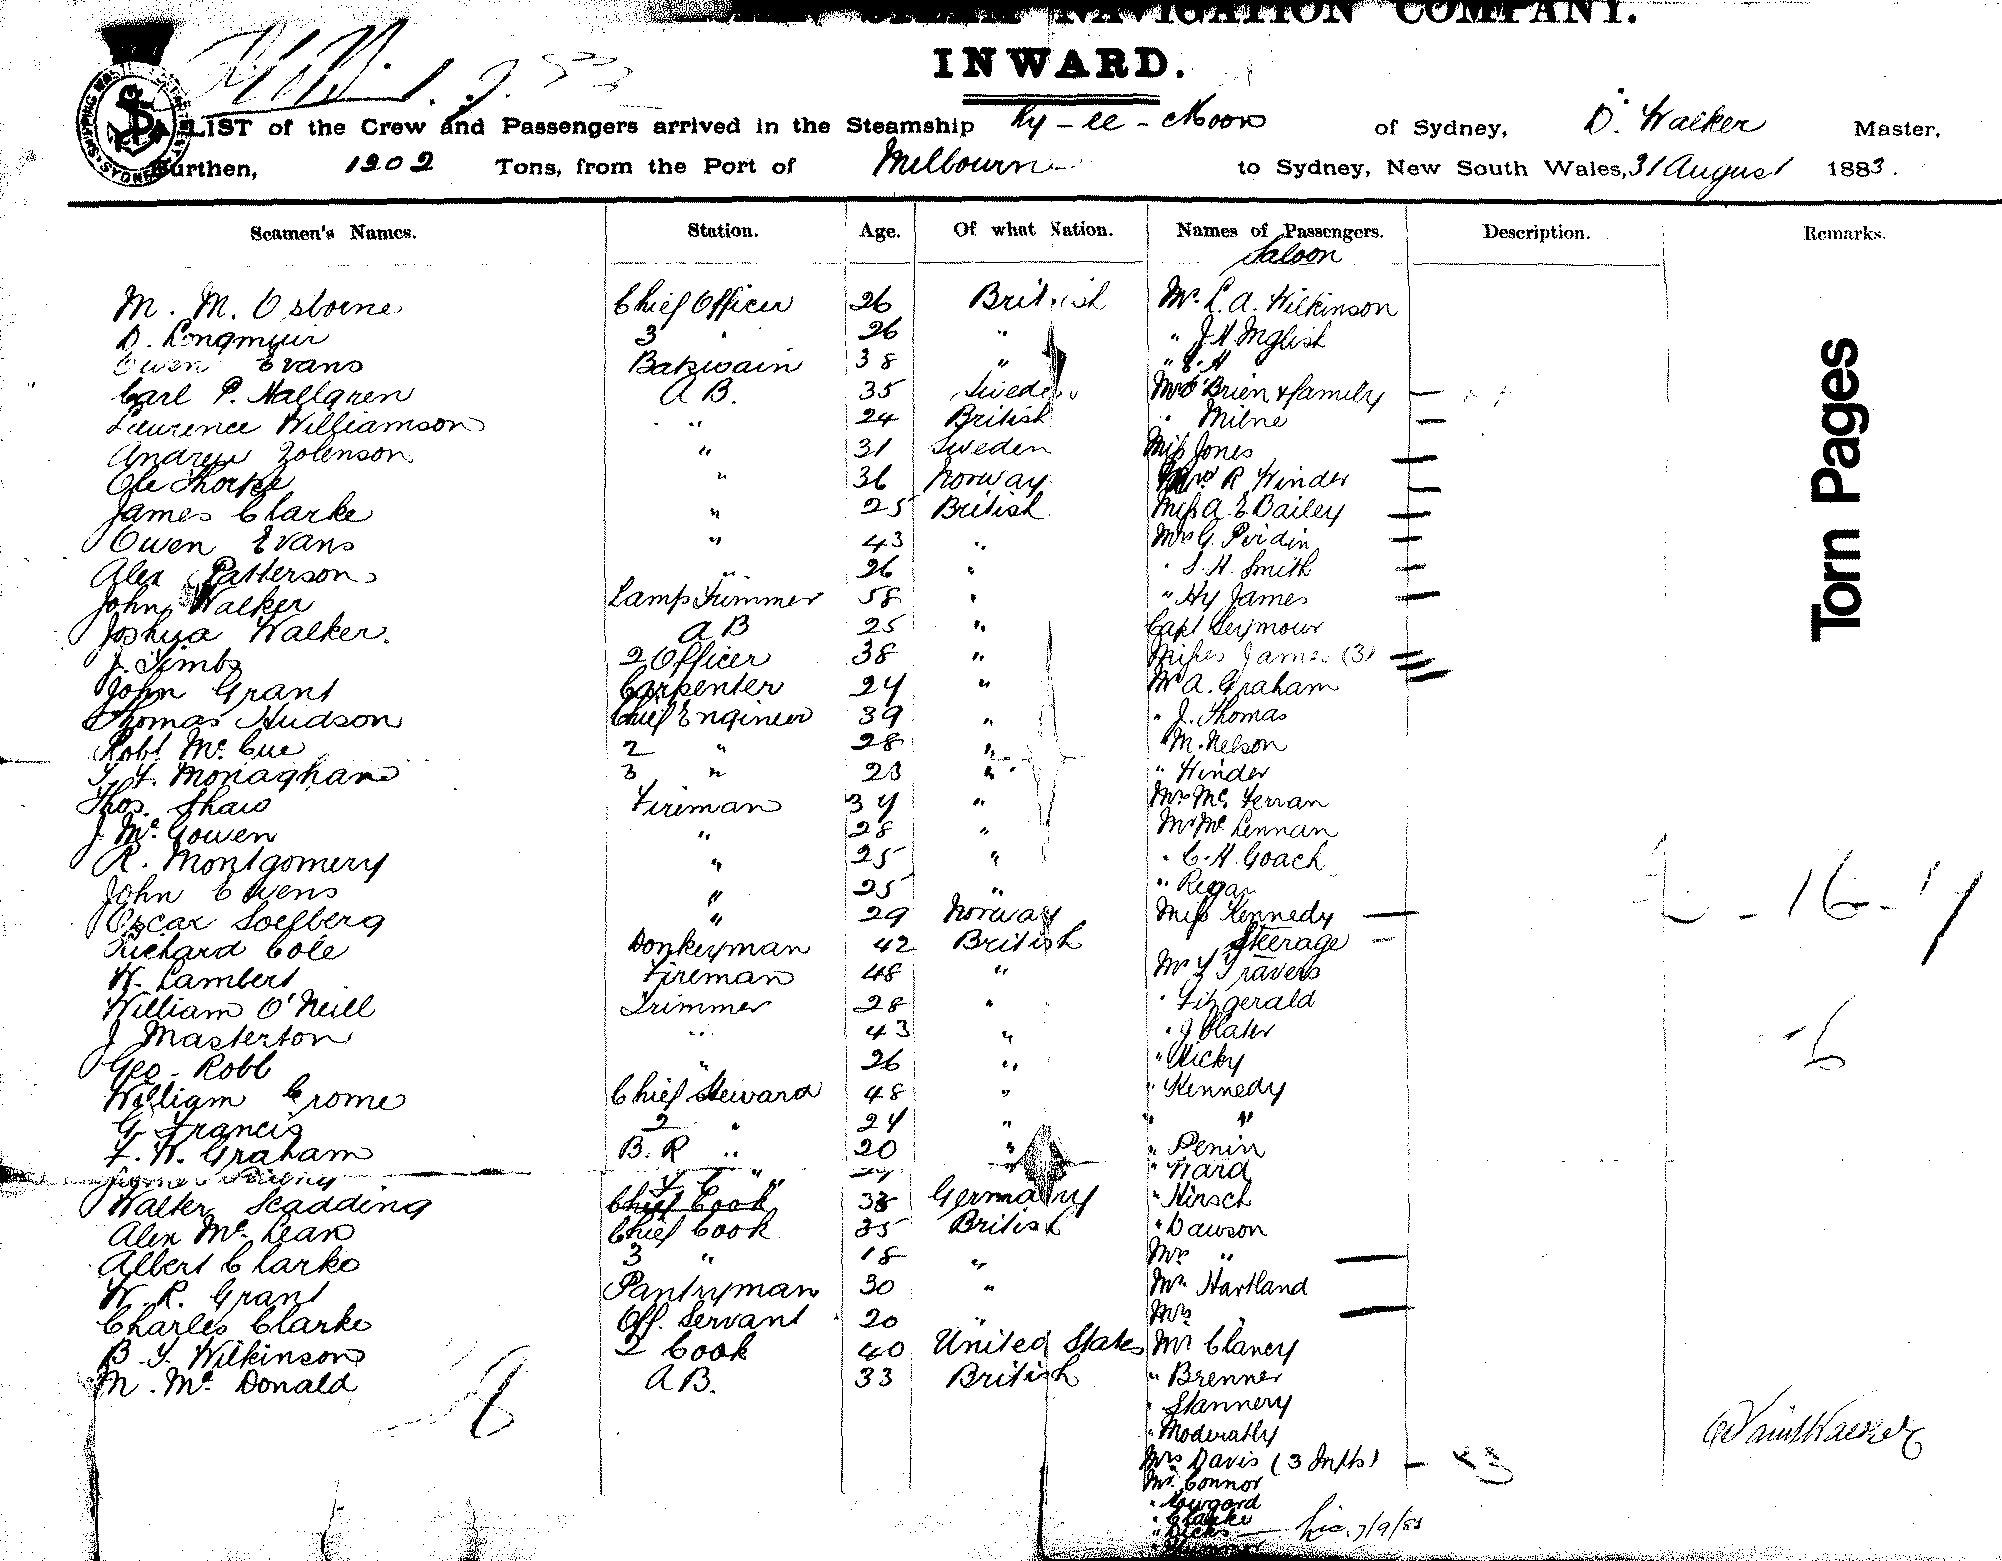 NAVIGATION COMPANY.
INWARD.
LIST of the Crew and Passengers arrived in the Steamship Ly-ee-Moon of Sydney, D. Walker Master,
Burthen, 1202 Tons, from the Port of Melbourne to Sydney, New South Wales, 31 August 1883.
Seamen's Names. Station. Age. Of what Nation. Names of Passengers. Description. Remarks.
Saloon
M. M. Osborne Chief Officer 26 British Mr. L. A. Wilkinson
D. Longmuir 3 " 26 " " J H Inglish
Owen Evans Boatswain 38 "
Carl P. Hallgren A B. 35 Sweden Mrs O'Brien & family
Laurence Williamson " 24 British " Milne
Andrew Zolenson " 31 Sweden Miss Jones
Ole Thorke " 36 Norway Mrs R Hinder
James Clarke " 25 British Miss A E Bailey
Owen Evans " 43 " Mrs G. Perdin
Alex Patterson " 26 " " S. H. Smith
John Walker Lamp Trimmer 58 " " Hy James
Joshua Walker. A B 25 " Capt Seymour
J. Timbs 2 Officer 38 " Misses James (3)
John Grant Carpenter 24 " Mr A. Graham
Thomas Hudson Chief Engineer 39 " " J. Thomas
Robt Mc. Cue 2 " 28 " " M. Nelson
T. F. Monaghan 3 " 23 " " Hinder
Thos. Shaw Fireman 34 " Mr Mc. Ferran
J. Mc. Gowen " 28 " Mr Mc Lennan
R. Montgomery " 25 " " C. H. Goach
John Owens " 25 " " Regan
Oscar Soelberg " 29 Norway Miss Kennedy
Steerage
Richard Cole Donkeyman 42 British
W. Lambert Fireman 48 " Mr Travers
William O'Neill Trimmer 28 " " Fitzgerald
J Masterton " 43 " " J Slater
Geo. Robb " 26 " " Dicky
William Crome Chief Steward 48 " " Kennedy
G. Francis 2 " 24 " " "
F. W. Graham B. R " 20 " " Penin
" Ward
Walter Scadding Chief Cook 38 Germany " Hirsch
Alex Mc. Lean Chief Cook 35 British " Dawson
Albert Clarke 3 " 18 " Mrs "
W. R. Grant Pantryman 30 " Mr. Hartland
Charles Clarke Off. Servant 20 " Mrs "
B. T. Wilkinson 2 Cook 40 United States Mr Clancy
M. Mc. Donald A B. 33 British " Brenner
" Stannery
" Moderatly
Mrs Davis (3 Infts)
Mr. Connor
" Clarke
" Dicks
7/9/83
Torn Pages